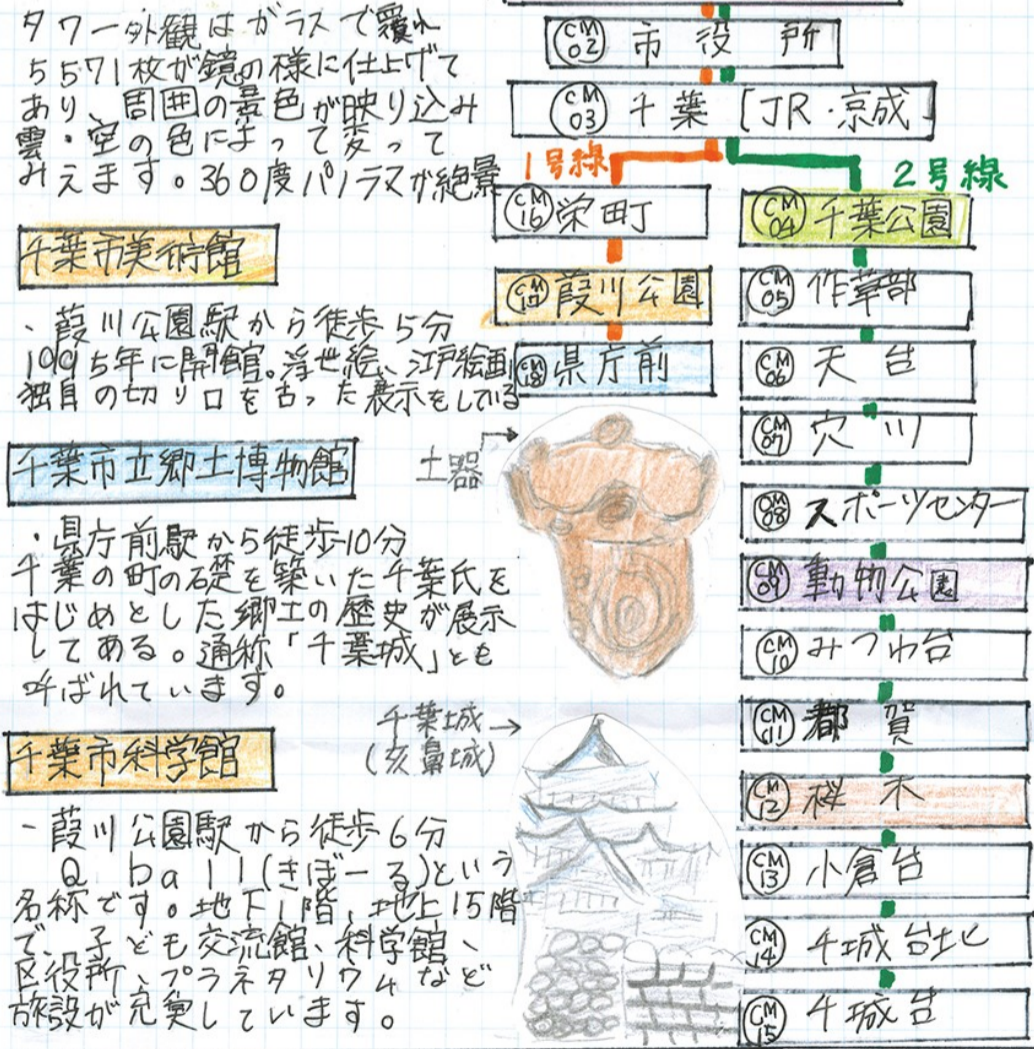 タワー外観はガラスで覆れ
5571枚が鏡の様に仕上げて
あり、周囲の景色が映り込み
雲・空の色によって変って
みえます。360度パノラマが絶景
千葉市美術館
・葭川公園駅から徒歩5分
1995年に開館。浮世絵、江戸絵画
独自の切り口を古った表示をしている
千葉市立郷土博物館
・県庁前駅から徒歩10分
千葉の町の礎を築いた千葉氏を
はじめとした郷土の歴史が展示
してある。通称「千葉城」とも
呼ばれています。
千葉市科学館
・葭川公園駅から徒歩6分
Qball(きぼーる)という
名称です。地下1階、地上15階
で、子ども交流館、科学館、
区役所、プラネタリウムなど
施設が充実しています。
土器
千葉城
(亥鼻城)
CM02 市役所
CM03 千葉[JR・京成]
1号線
CM16 栄町
CM17 葭川公園
CM18 県庁前
2号線
CM04 千葉公園
CM05 作草部
CM06 天台
CM07 穴川
CM08 スポーツセンター
CM09 動物公園
CM10 みつわ台
CM11 都賀
CM12 桜木
CM13 小倉台
CM14 千城台北
CM15 千城台